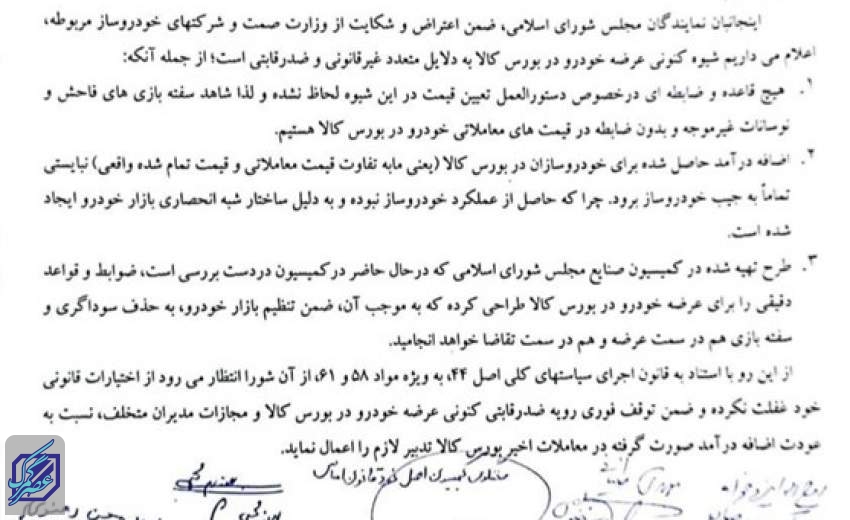 اینجانبان نمایندگان مجلس شورای اسلامی، ضمن اعتراض و شکایت از وزارت صمت و شرکتهای خودروساز مربوطه،
اعلام می داریم شیوه کنونی عرضه خودرو در بورس کالا به دلایل متعدد غیرقانونی و ضدرقابتی است؛ از جمله آنکه:
۱. هیچ قاعده و ضابطه ای درخصوص دستورالعمل تعیین قیمت در این شیوه لحاظ نشده و لذا شاهد سفته بازی های فاحش و
نوسانات غیرموجه و بدون ضابطه در قیمت های معاملاتی خودرو در بورس کالا هستیم.
۲. اضافه درآمد حاصل شده برای خودروسازان در بورس کالا (یعنی مابه تفاوت قیمت معاملاتی و قیمت تمام شده واقعی) نبایستی
تماماً به جیب خودروساز برود. چرا که حاصل از عملکرد خودروساز نبوده و به دلیل ساختار شبه انحصاری بازار خودرو ایجاد
شده است.
۳. طرح تهیه شده در کمیسیون صنایع مجلس شورای اسلامی که درحال حاضر در کمیسیون دردست بررسی است، ضوابط و قواعد
دقیقی را برای عرضه خودرو در بورس کالا طراحی کرده که به موجب آن، ضمن تنظیم بازار خودرو، به حذف سوداگری و
سفته بازی هم در سمت عرضه و هم در سمت تقاضا خواهد انجامید.
از این رو با استناد به قانون اجرای سیاستهای کلی اصل ۴۴، به ویژه مواد ۵۸ و ۶۱، از آن شورا انتظار می رود از اختیارات قانونی
خود غفلت نکرده و ضمن توقف فوری رویه ضدرقابتی کنونی عرضه خودرو در بورس کالا و مجازات مدیران متخلف، نسبت به
عودت اضافه درآمد صورت گرفته در معاملات اخیر بورس کالا تدبیر لازم را اعمال نماید.
عصر گمرک